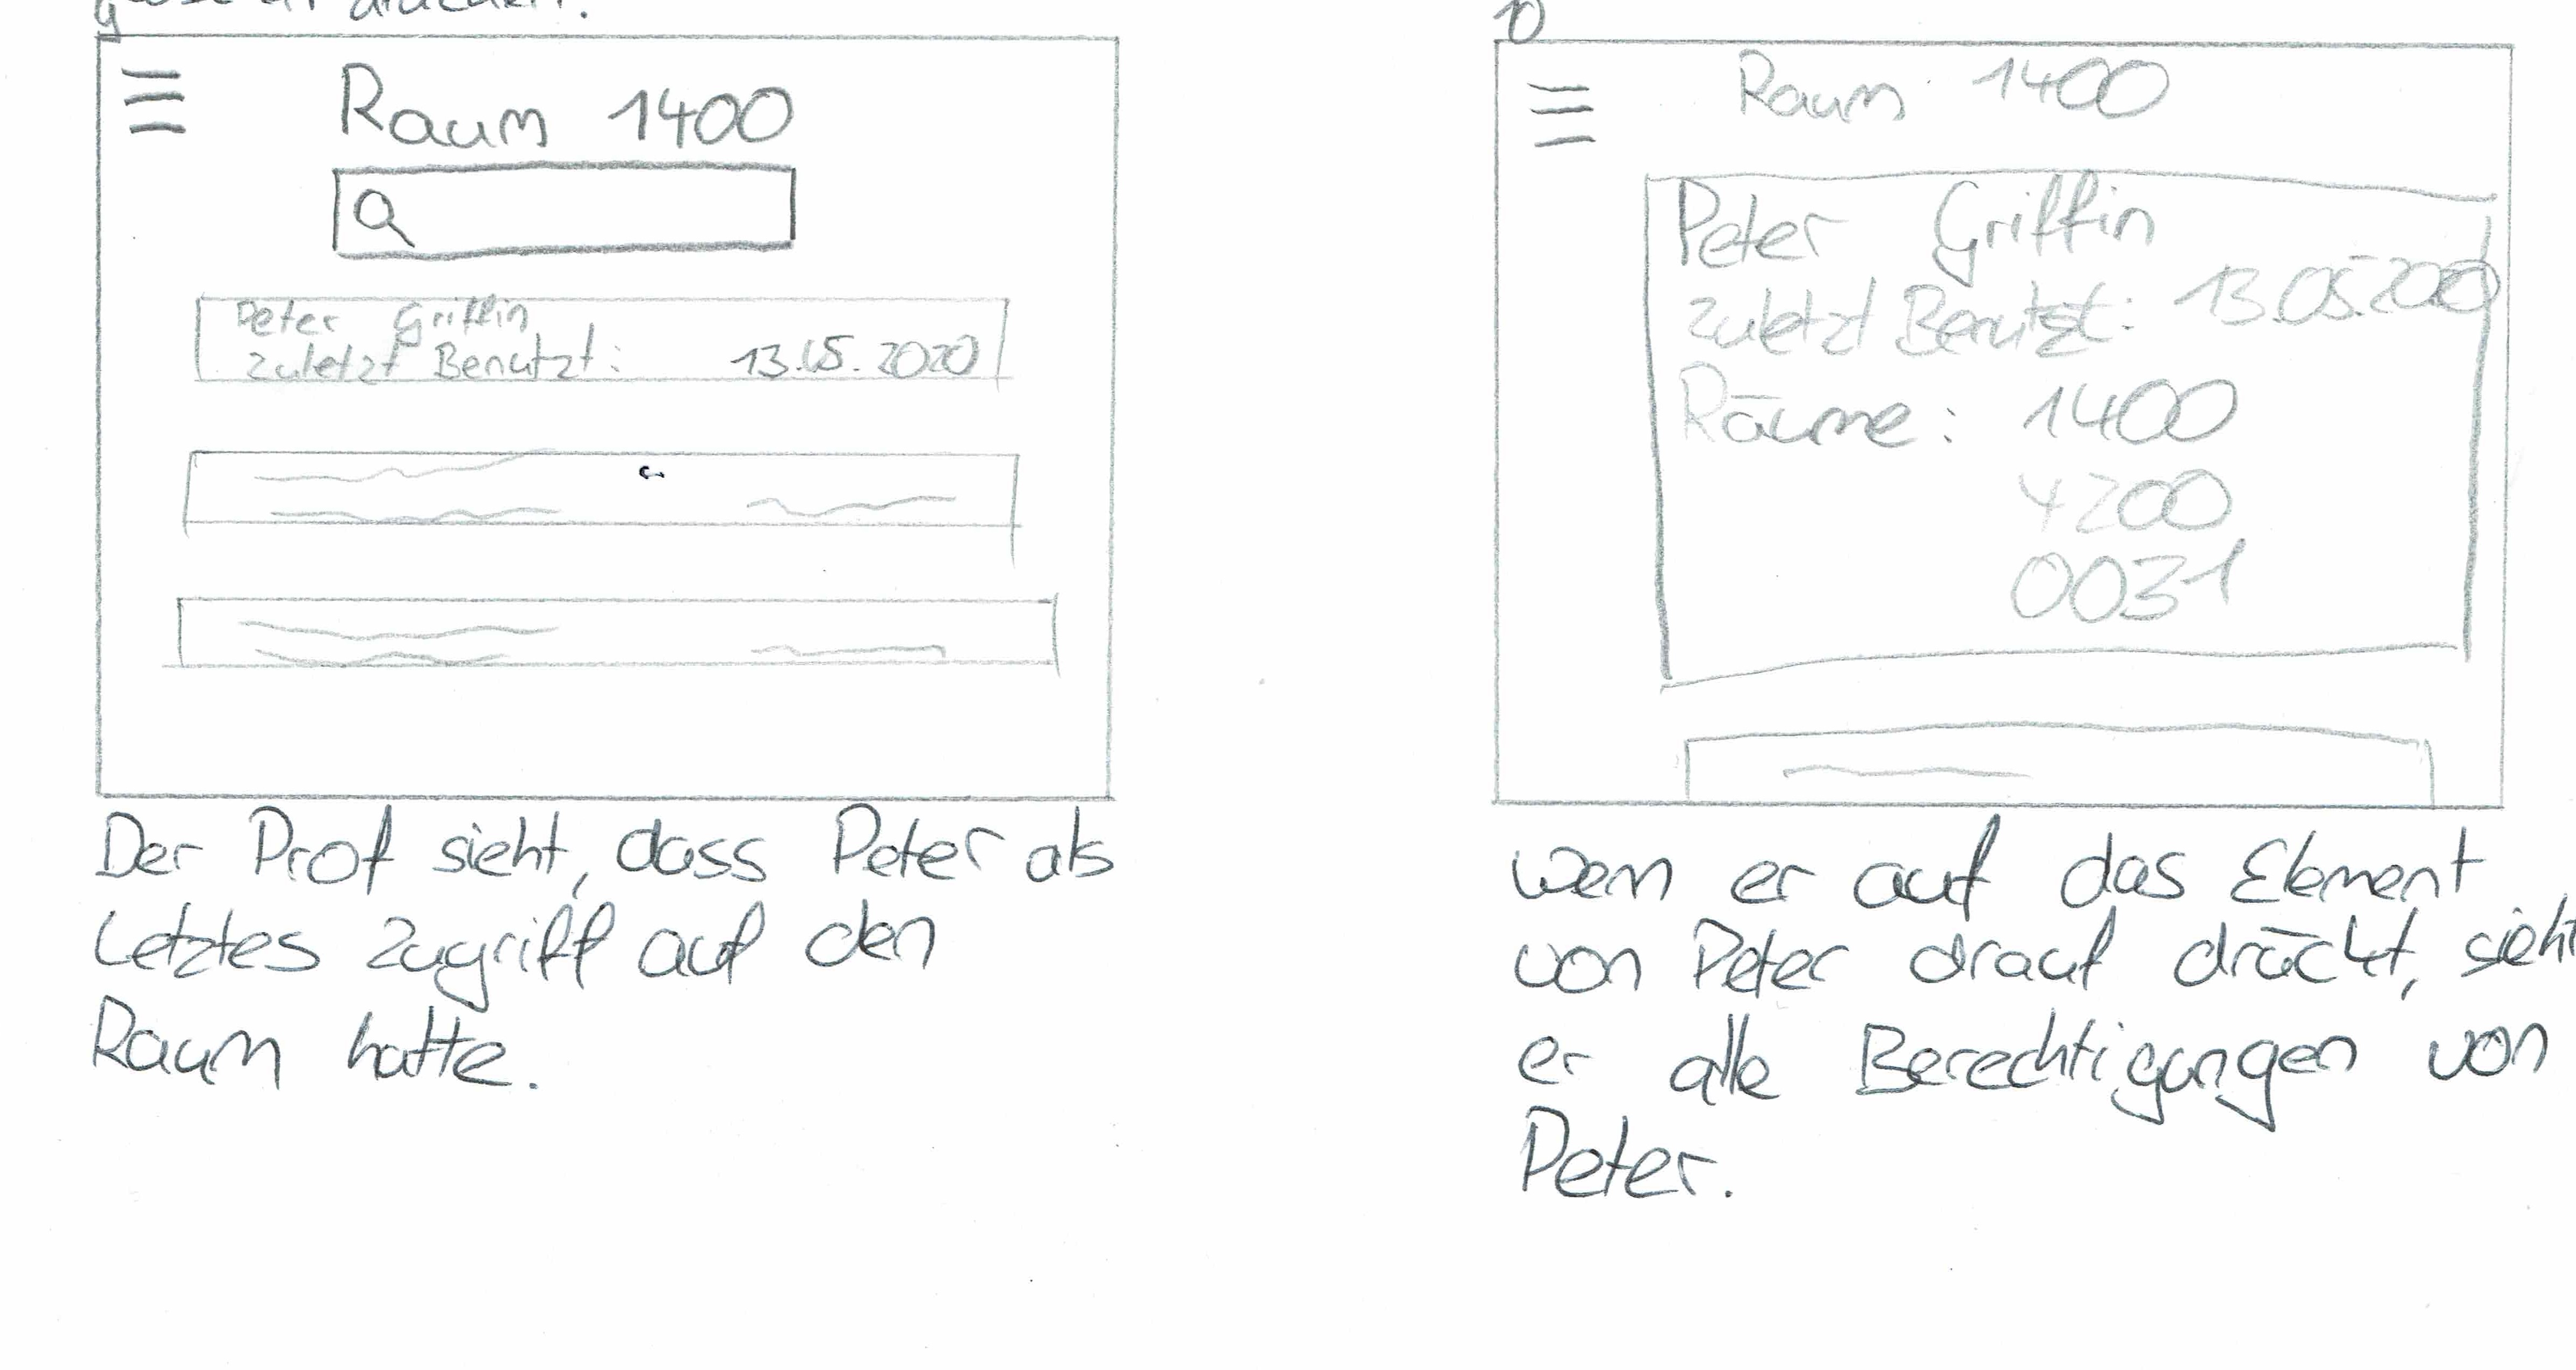 Raum 1400
Peter Griffin
zuletzt Benutzt: 13.05.2020
Der Prof sieht, dass Peter als
letztes Zugriff auf den
Raum hatte.
10
Raum 1400
Peter Griffin
zuletzt Benutzt: 13.05.2020
Räume: 1400
4200
0031
wenn er auf das Element
von Peter drauf drückt, sieht
er alle Berechtigungen von
Peter.